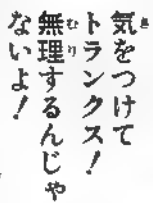 気をつけて
トランクス！
無理するんじゃ
ないよ！